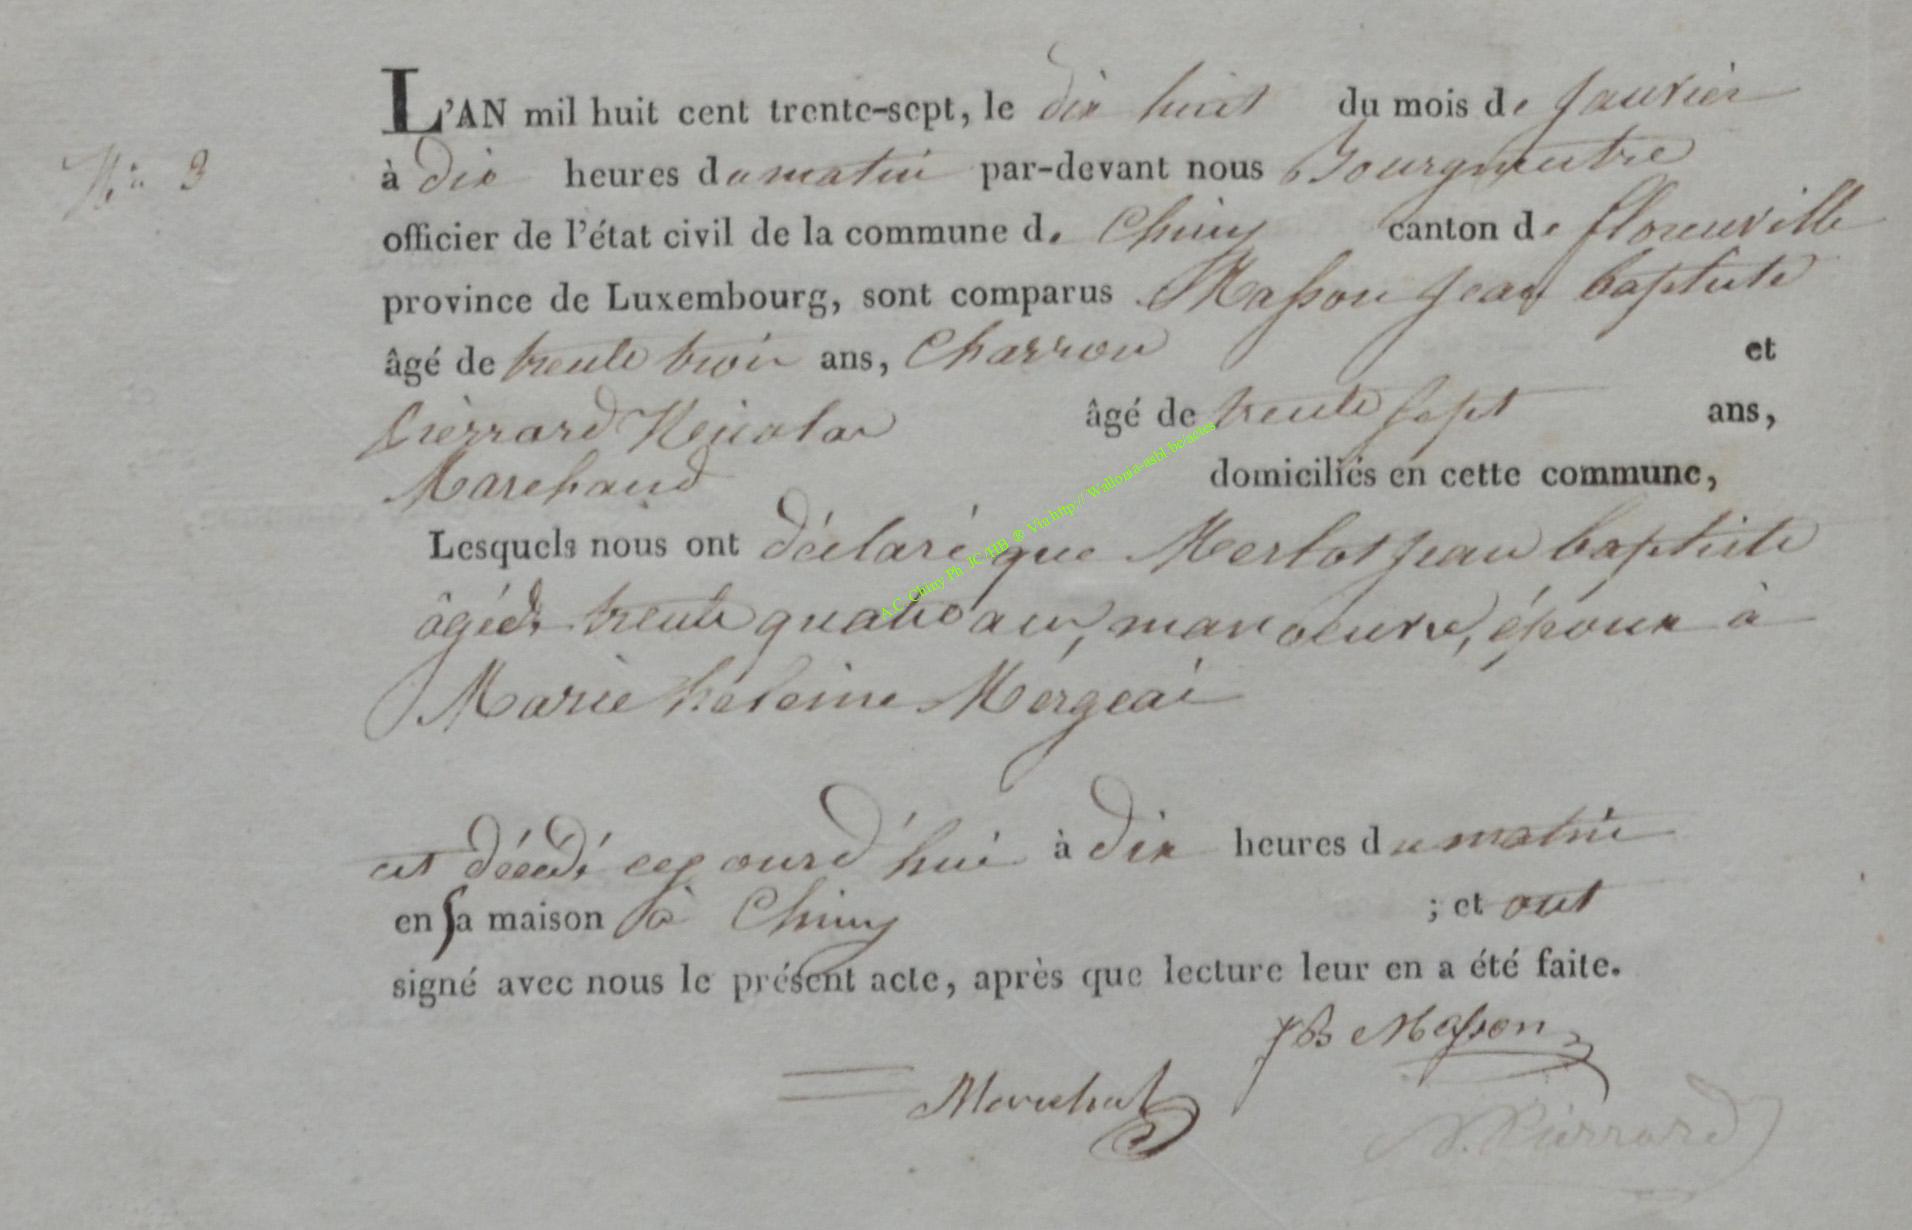 L'AN mil huit cent trente-sept, le dix huit du mois de Janvier
N° 3
à dix heures du matin par-devant nous Bourgmestre
officier de l'état civil de la commune de Chiny canton de florenville
province de Luxembourg, sont comparus Masson Jean baptiste
âgé de trente trois ans, Charron et
Pierrard Nicolas âgé de trente sept ans,
Marchand domiciliés en cette commune,
Lesquels nous ont déclaré que Merlot Jean baptiste
âgé de trente quatre ans, manoeuvre, époux à
Marie heleine Mergeai
est décédé cejourd'hui à dix heures du matin
en sa maison à Chiny ; et ont
signé avec nous le présent acte, après que lecture leur en a été faite.
JB Masson
Marechal
N. Pierrard
A.C. Chiny Ph JC HB @ Via http:// Wallonia-asbl.be/actes